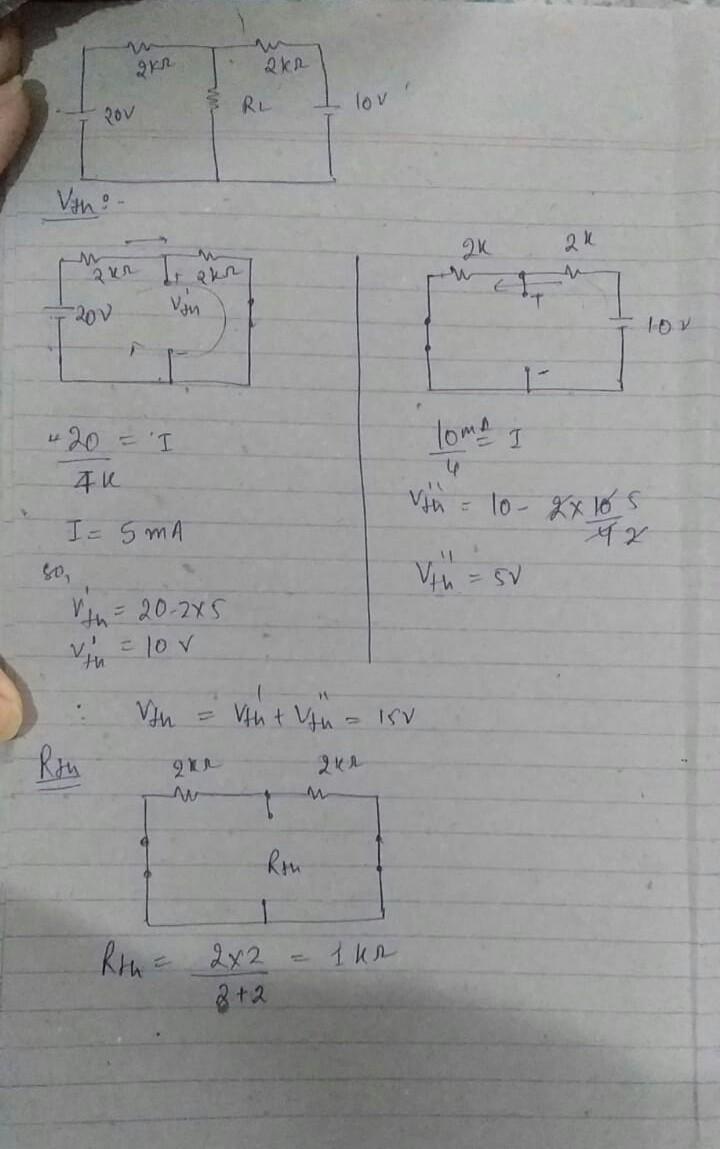 2KΩ 2KΩ
20V RL 10V
Vth :-
2KΩ 2KΩ
20V + V'th -
20/4K = I
I = 5mA
so,
V'th = 20-2x5
V'th = 10V
2K 2K
+ 10V
-
10mA/4 = I
V''th = 10 - 2x10/4 5 2
V''th = 5V
∴ Vth = Vth' + Vth'' = 15V
Rth
2KΩ 2KΩ
Rth
Rth = 2x2/2+2 = 1KΩ